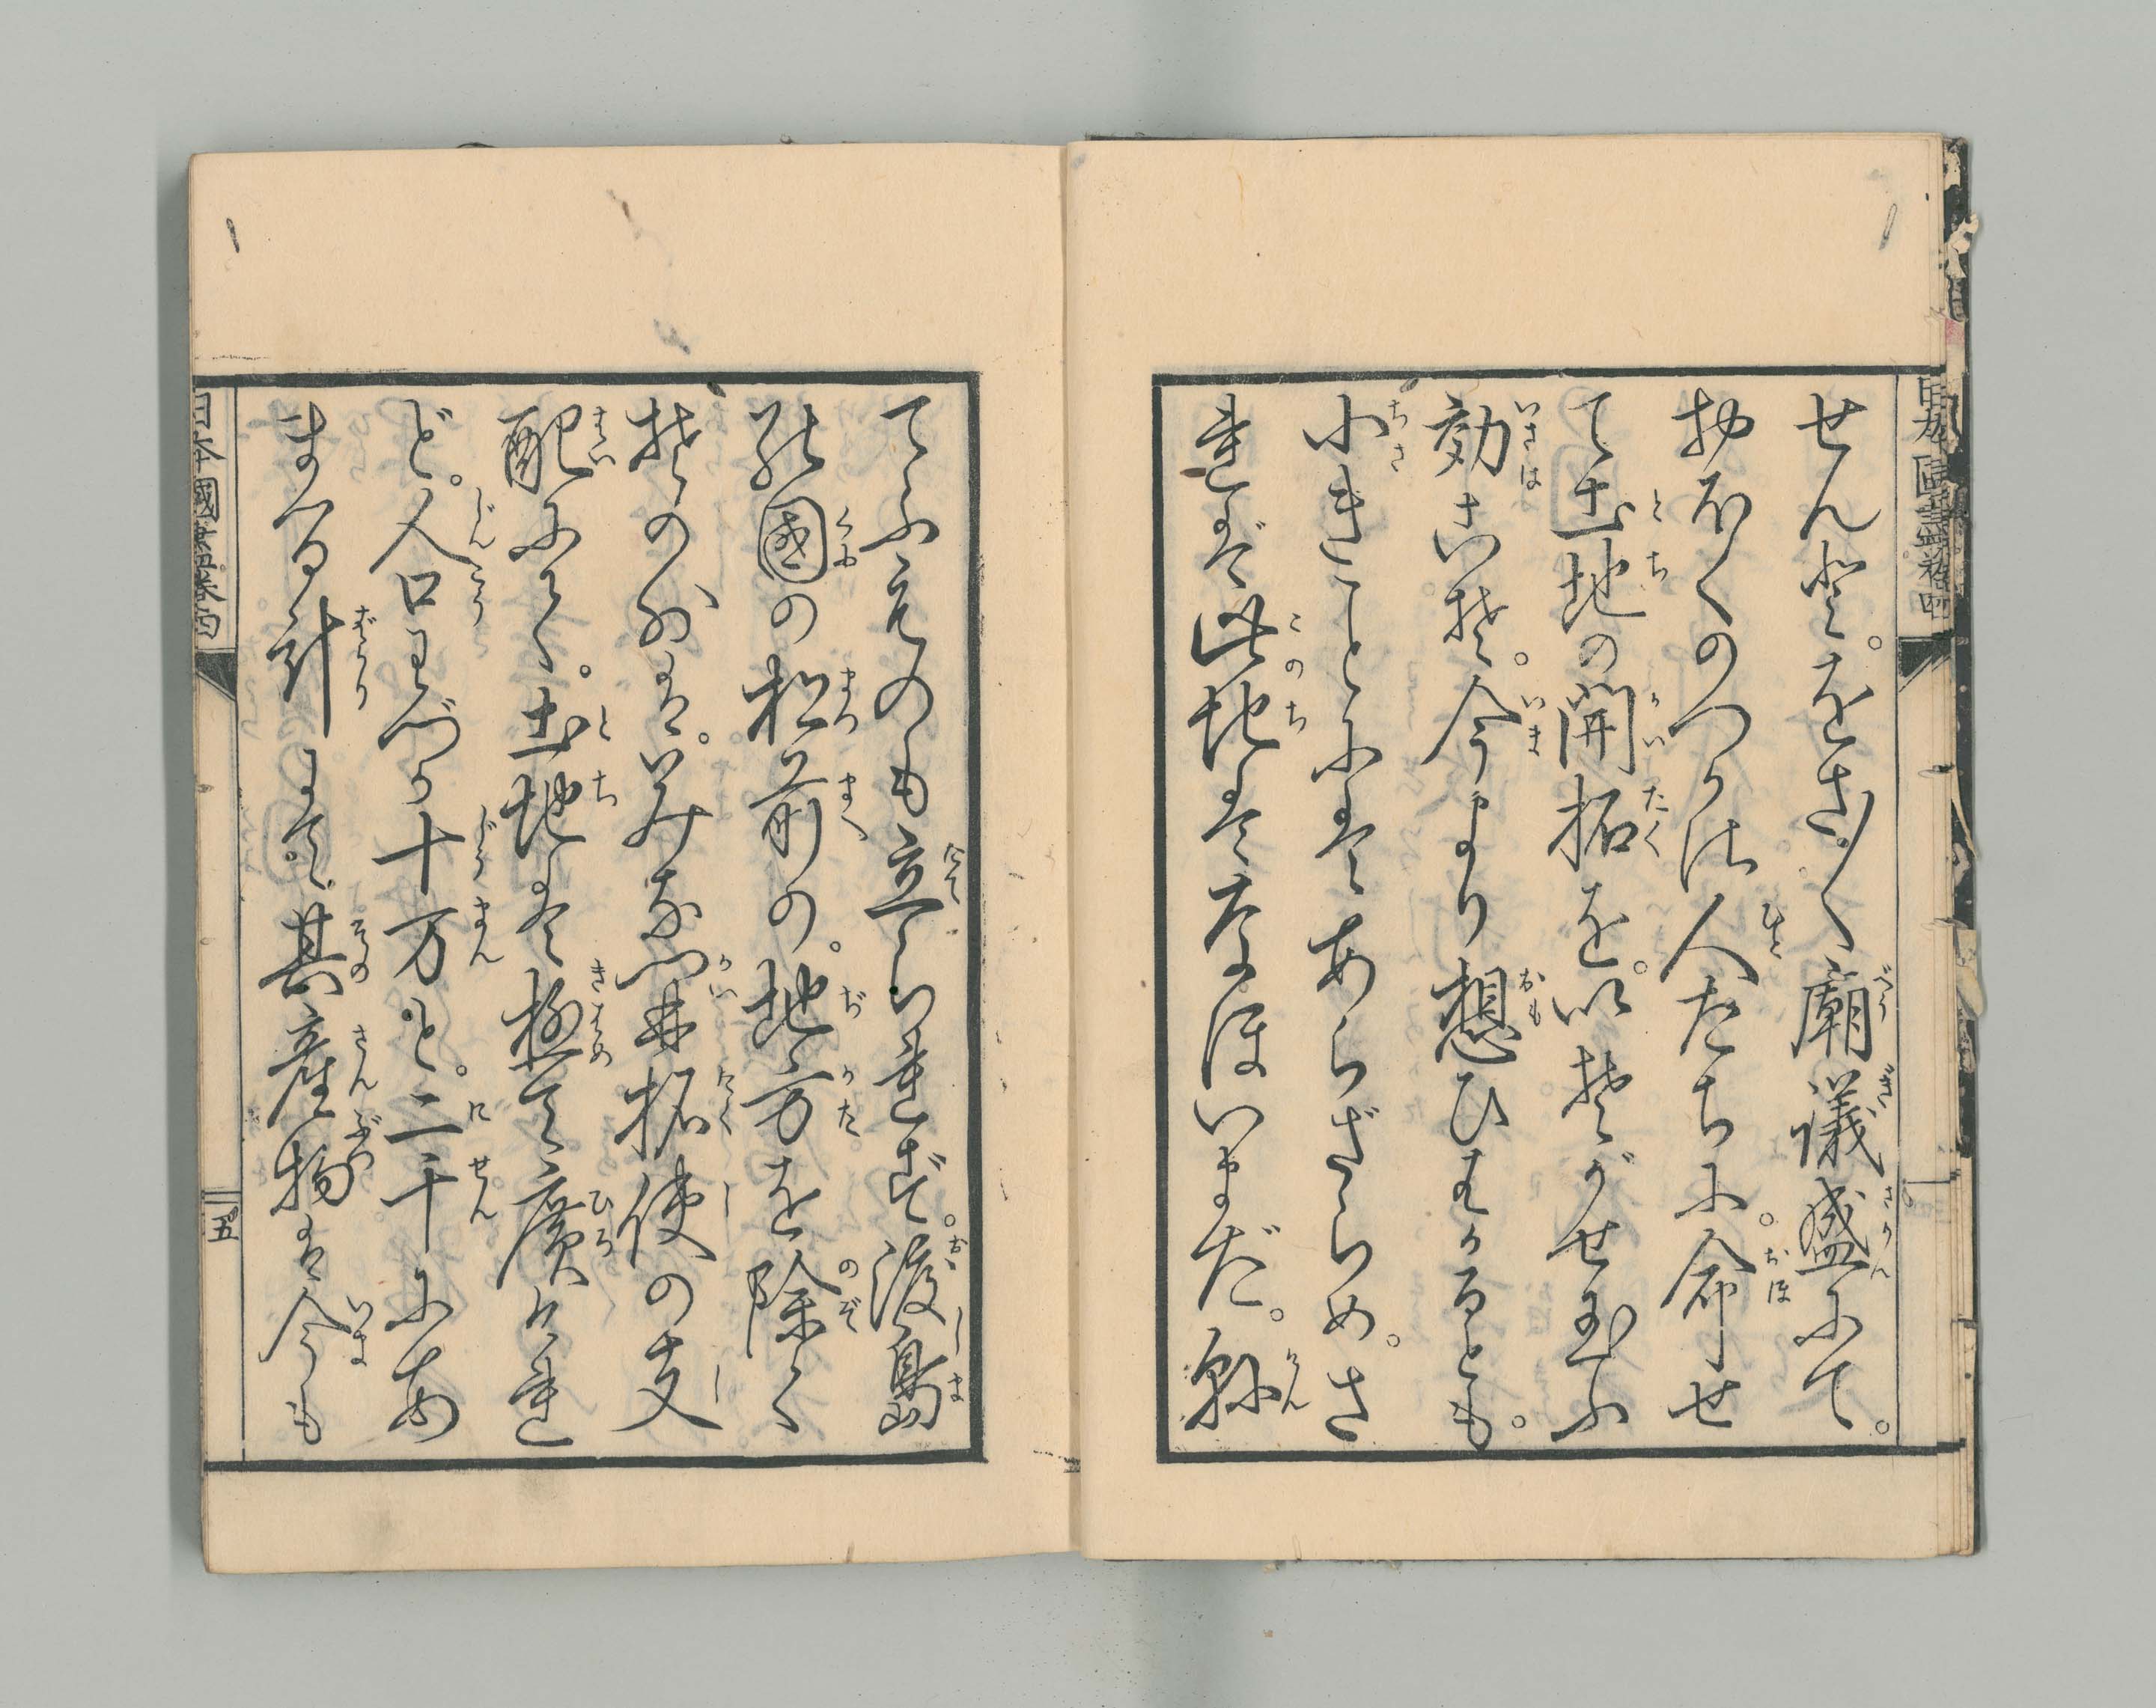 せんと。をさ〳〵廟儀盛にて。
おほくのつかさ人たちに。命せ
て土地の開拓を。いそがせ玉ふ
効こそ。今より想ひはかるとも。
小きことにはあらざらめ。さ
れど此地はなほいまだ。縣
てふものも立られず。渡島
の國の松前の。地方を除く
そのかは。いみな開拓使の支
配にて。土地は極て廣けれ
ど。人口わづか十万と。二千にあ
まる計にて。其産物は今も
日本國盡巻四
五